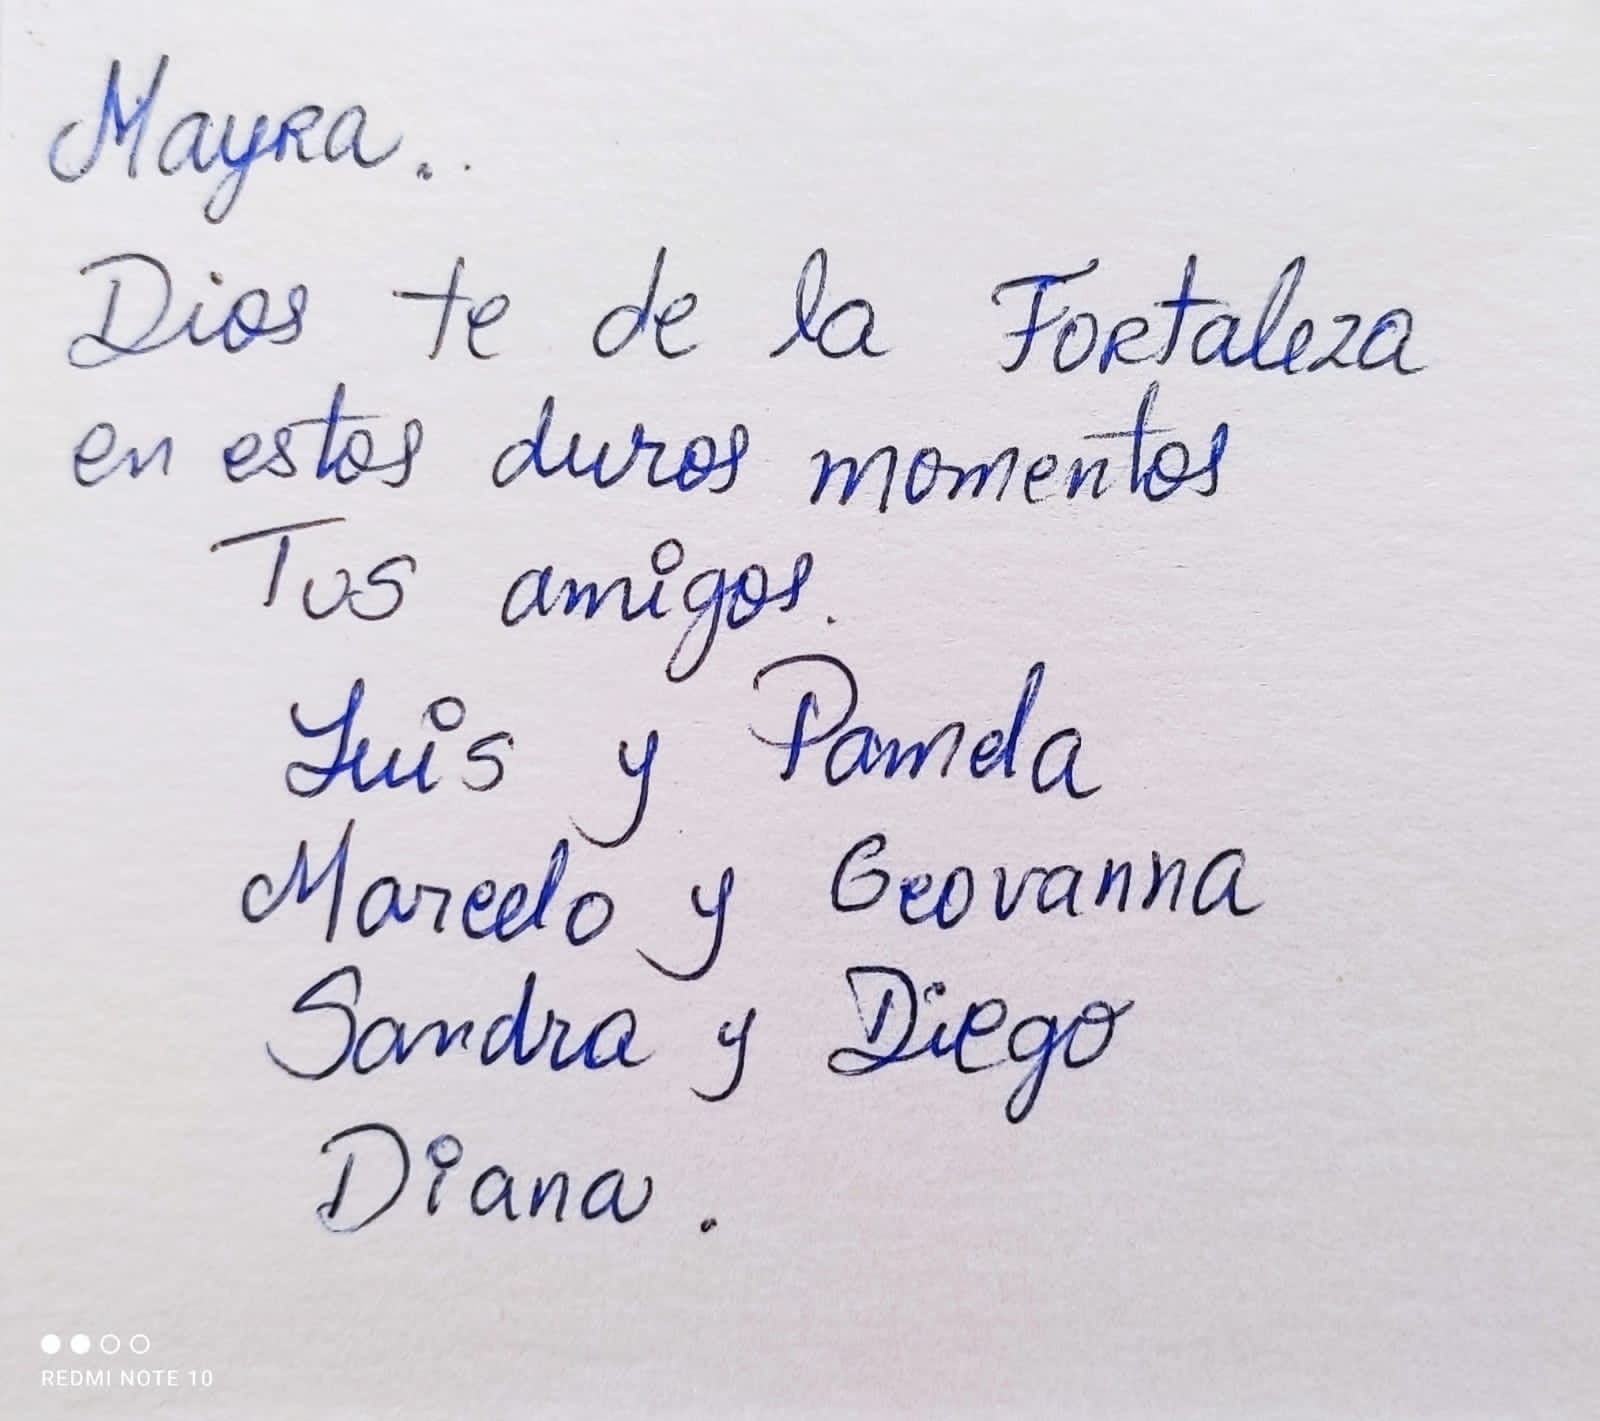 Mayra..
Dios te de la Fortaleza
en estos duros momentos
Tus amigos.
Luis y Pamela
Marcelo y Geovanna
Sandra y Diego
Diana.
REDMI NOTE 10